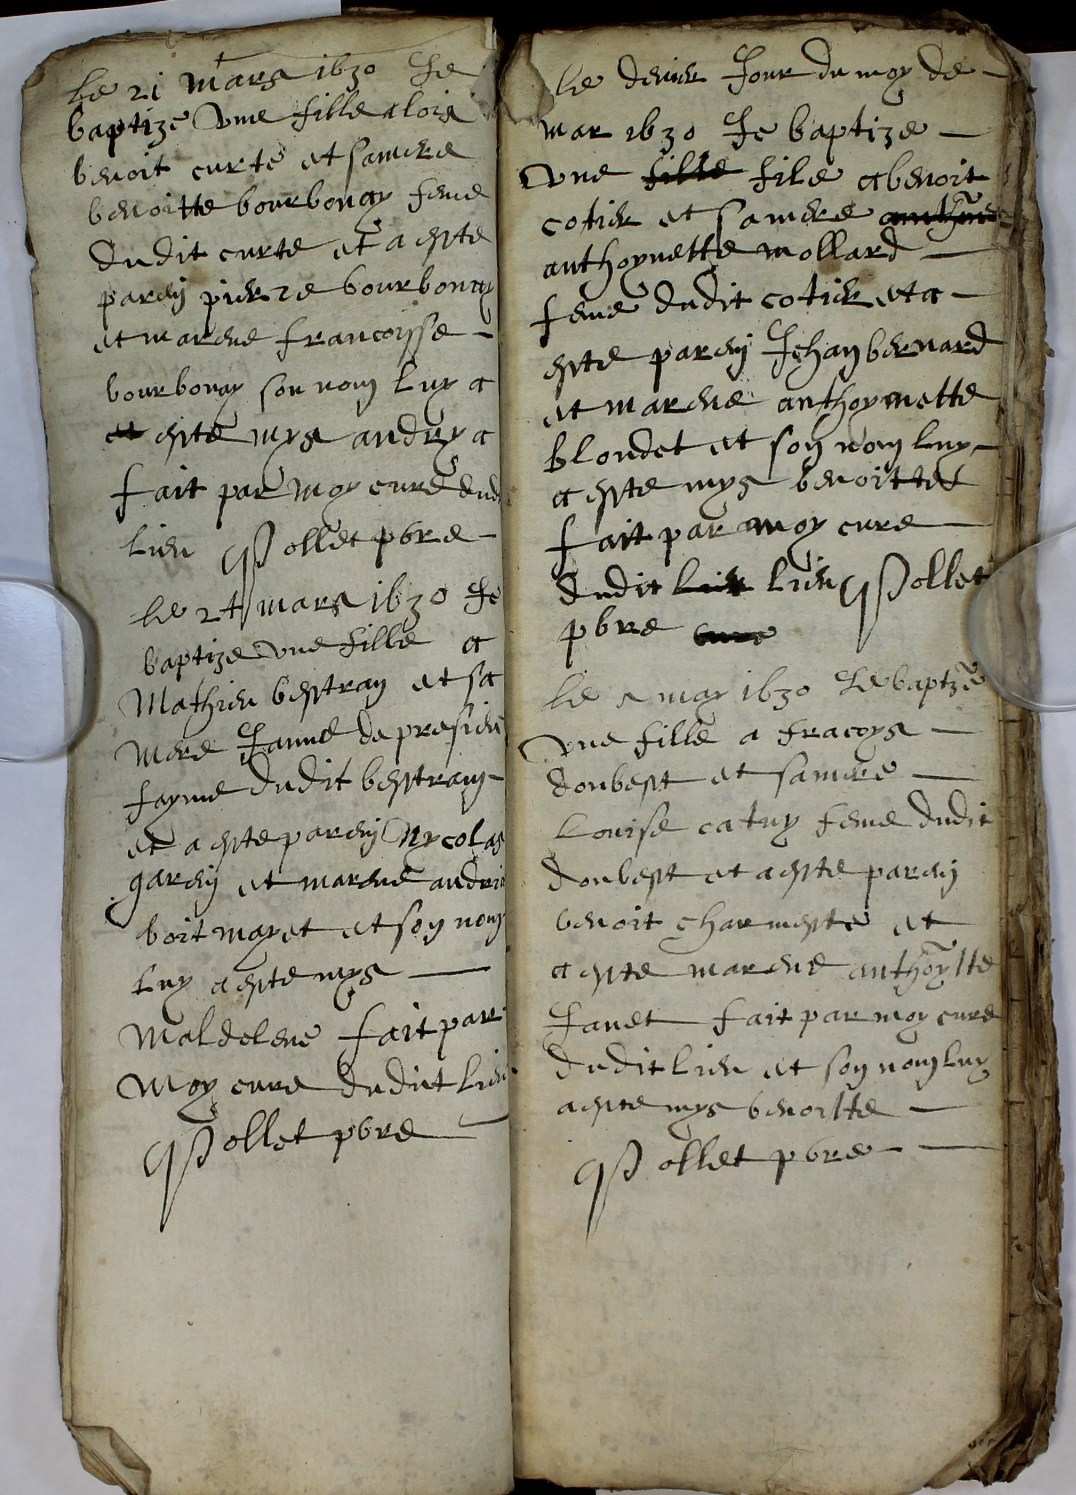 Le 21 mars 1630 Je
baptize une fille a lois
benoit curte et sa mere
benoitte bourbonay feme
dudit curte et a este
parey pierre bourbonay
et marene francoysse
bourbonay son nom luy a
este mys andrya
fait par moy cure dud
lieu Pollet pbre
Le 24 mars 1630 Je
baptize une fille a
Mathieu bestray et sa
mere Janne de presieu
fayme dudit bestrain
et a este parey Nycolas
garey et marene andri
boit mayet et soy nom
luy a este mys
Maldelene fait par
moy cure dudict lieu
Pollet pbre
Le denier Jour du moy de
mar 1630 Je baptize
une fille file a benoit
cotier et sa mere
anthoynette mollard
feme dudit cotier et a
este parey Jehay bernard
et marene anthoynette
blondet et soy nom luy
a este mys benoitte
fait par moy cure
dudit lieu Pollet
pbre cure
Le may 1630 Je baptize
une fille a fracoys
doubest et sa mere
Louise catuy feme dudit
doubest et a este parey
benoit charmeste et
a este marene anthoytte
Janet fait par moy cure
dudit lieu et soy nom luy
a este mys benoitte
Pollet pbre